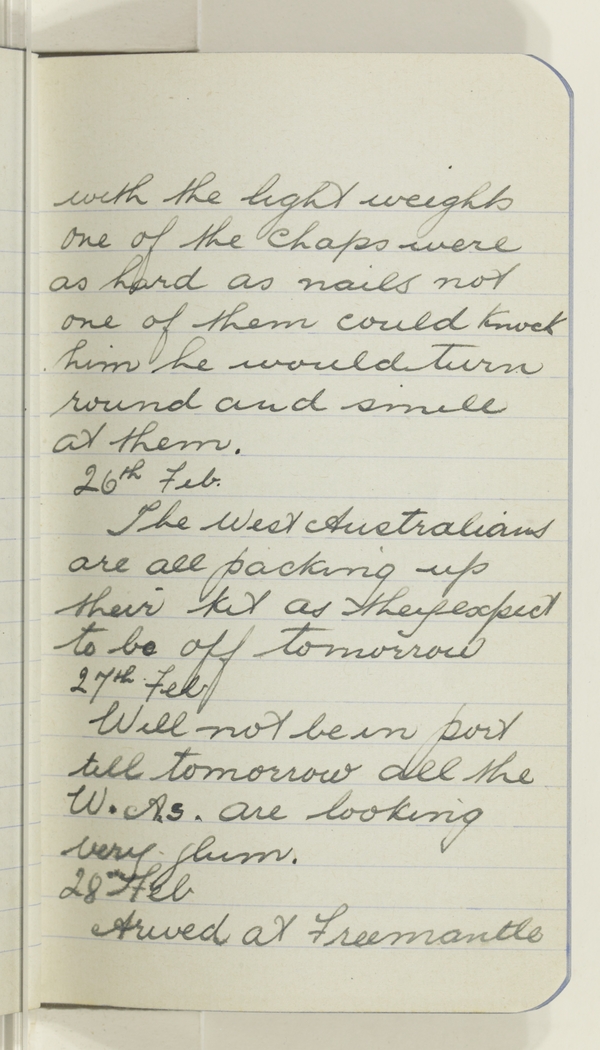 with the light weights
one of the chaps were
as hard as nails not
one of them could knock
him he would turn
round and smile
at them.
26th Feb.
The West Australians
are all packing up
their kit as they expect
to be off tomorrow
27th Feb
Will not be in port
till tomorrow all the
W.As. are looking
very glum.
28th Feb
Arived at Freemantle